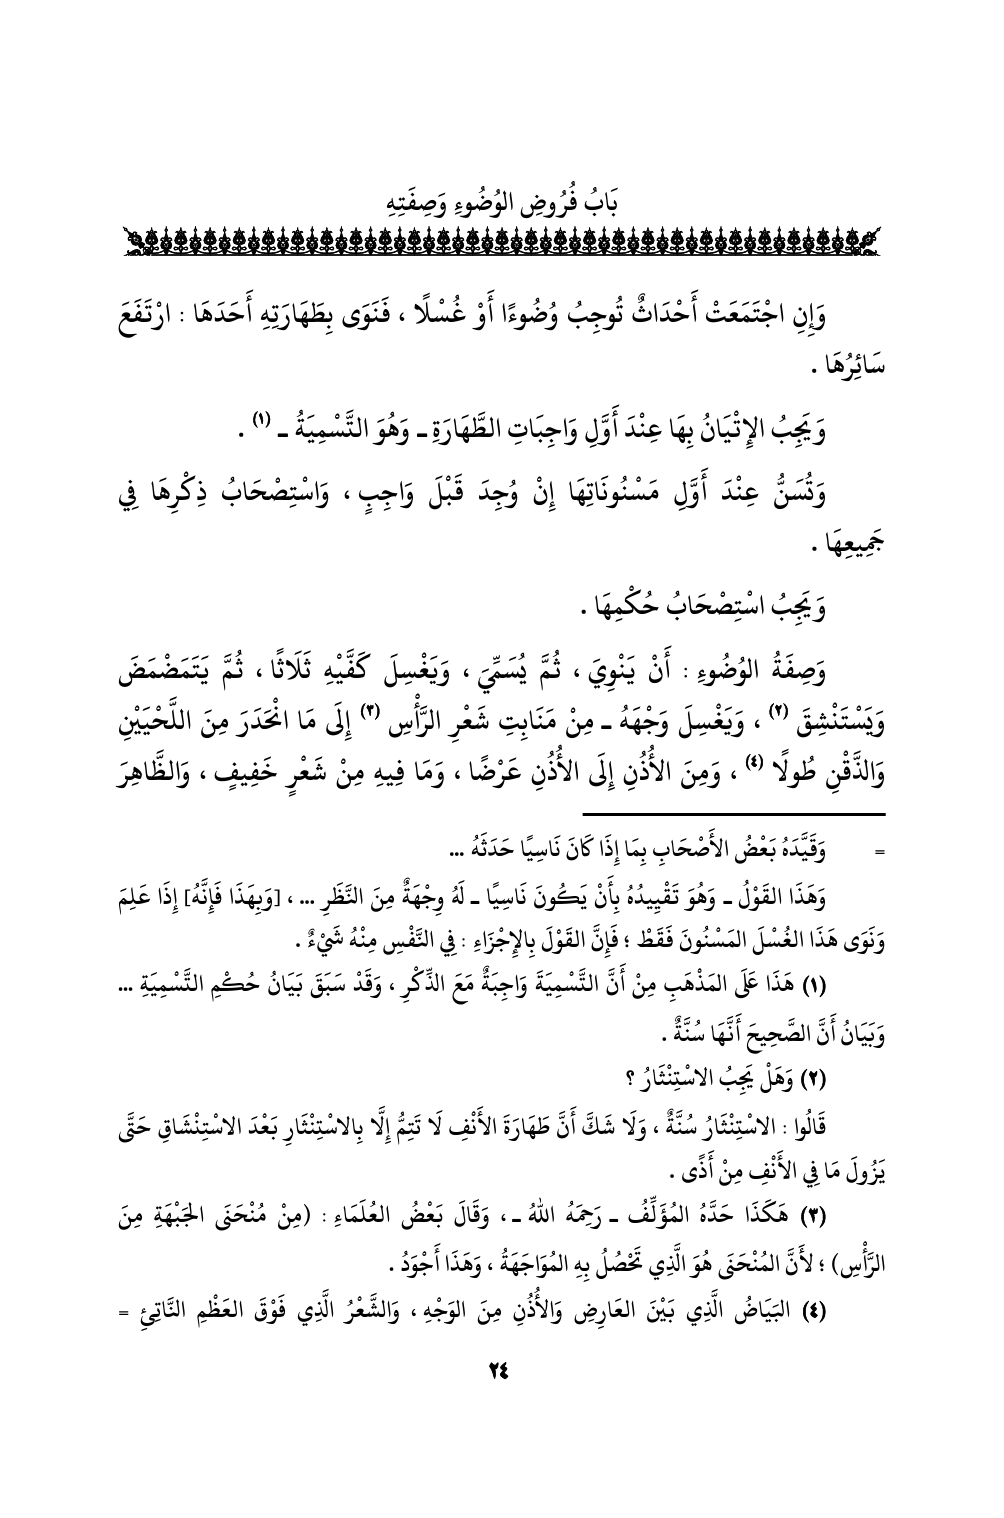 بَابُ فُرُوضِ الوُضُوءِ وَصِفَتِهِ
وَإِنِ اجْتَمَعَتْ أَحْدَاثٌ تُوجِبُ وُضُوءًا أَوْ غُسْلًا ، فَنَوَى بِطَهَارَتِهِ أَحَدَهَا : ارْتَفَعَ
سَائِرُهَا .
وَيَجِبُ الإِتْيَانُ بِهَا عِنْدَ أَوَّلِ وَاجِبَاتِ الطَّهَارَةِ ـ وَهُوَ التَّسْمِيَةُ ـ (١) .
وَتُسَنُّ عِنْدَ أَوَّلِ مَسْنُونَاتِهَا إِنْ وُجِدَ قَبْلَ وَاجِبٍ ، وَاسْتِصْحَابُ ذِكْرِهَا فِي
جَمِيعِهَا .
وَيَجِبُ اسْتِصْحَابُ حُكْمِهَا .
وَصِفَةُ الوُضُوءِ : أَنْ يَنْوِيَ ، ثُمَّ يُسَمِّيَ ، وَيَغْسِلَ كَفَّيْهِ ثَلَاثًا ، ثُمَّ يَتَمَضْمَضَ
وَيَسْتَنْشِقَ (٢) ، وَيَغْسِلَ وَجْهَهُ ـ مِنْ مَنَابِتِ شَعْرِ الرَّأْسِ (٣) إِلَى مَا انْحَدَرَ مِنَ اللَّحْيَيْنِ
وَالذَّقْنِ طُولًا (٤) ، وَمِنَ الأُذُنِ إِلَى الأُذُنِ عَرْضًا ، وَمَا فِيهِ مِنْ شَعْرٍ خَفِيفٍ ، وَالظَّاهِرَ
= وَقَيَّدَهُ بَعْضُ الأَصْحَابِ بِمَا إِذَا كَانَ نَاسِيًا حَدَثَهُ ...
وَهَذَا القَوْلُ ـ وَهُوَ تَقْيِيدُهُ بِأَنْ يَكُونَ نَاسِيًا ـ لَهُ وِجْهَةٌ مِنَ النَّظَرِ ... ، [وَبِهَذَا فَإِنَّهُ] إِذَا عَلِمَ
وَنَوَى هَذَا الغُسْلَ المَسْنُونَ فَقَطْ ؛ فَإِنَّ القَوْلَ بِالإِجْزَاءِ : فِي النَّفْسِ مِنْهُ شَيْءٌ .
(١) هَذَا عَلَى المَذْهَبِ مِنْ أَنَّ التَّسْمِيَةَ وَاجِبَةٌ مَعَ الذِّكْرِ ، وَقَدْ سَبَقَ بَيَانُ حُكْمِ التَّسْمِيَةِ ...
وَبَيَانُ أَنَّ الصَّحِيحَ أَنَّهَا سُنَّةٌ .
(٢) وَهَلْ يَجِبُ الاسْتِنْثَارُ ؟
قَالُوا : الاسْتِنْثَارُ سُنَّةٌ ، وَلَا شَكَّ أَنَّ طَهَارَةَ الأَنْفِ لَا تَتِمُّ إِلَّا بِالاسْتِنْثَارِ بَعْدَ الاسْتِنْشَاقِ حَتَّى
يَزُولَ مَا فِي الأَنْفِ مِنْ أَذًى .
(٣) هَكَذَا حَدَّهُ المُؤَلِّفُ ـ رَحِمَهُ اللهُ ـ ، وَقَالَ بَعْضُ العُلَمَاءِ : (مِنْ مُنْحَنَى الجَبْهَةِ مِنَ
الرَّأْسِ) ؛ لأَنَّ المُنْحَنَى هُوَ الَّذِي تَحْصُلُ بِهِ المُوَاجَهَةُ ، وَهَذَا أَجْوَدُ .
(٤) البَيَاضُ الَّذِي بَيْنَ العَارِضِ وَالأُذُنِ مِنَ الوَجْهِ ، وَالشَّعْرُ الَّذِي فَوْقَ العَظْمِ النَّاتِئِ =
٢٤